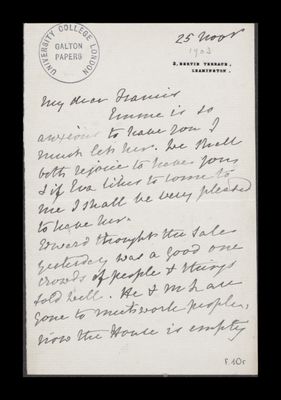 UNIVERSITY COLLEGE LONDON
GALTON
PAPERS
25 Novr
1903
3, BERTIE TERRACE,
LEAMINGTON.
My dear Francis
Emme is so
anxious to have you I
must let her. We shall
both rejoice to have you
& if Eva likes to come to
me I shall be very pleased
to have her.
Edward thought the Sale
yesterday was a good one
crowds of people & things
sold well. He & M have
gone to
now the House is empty
F.10r